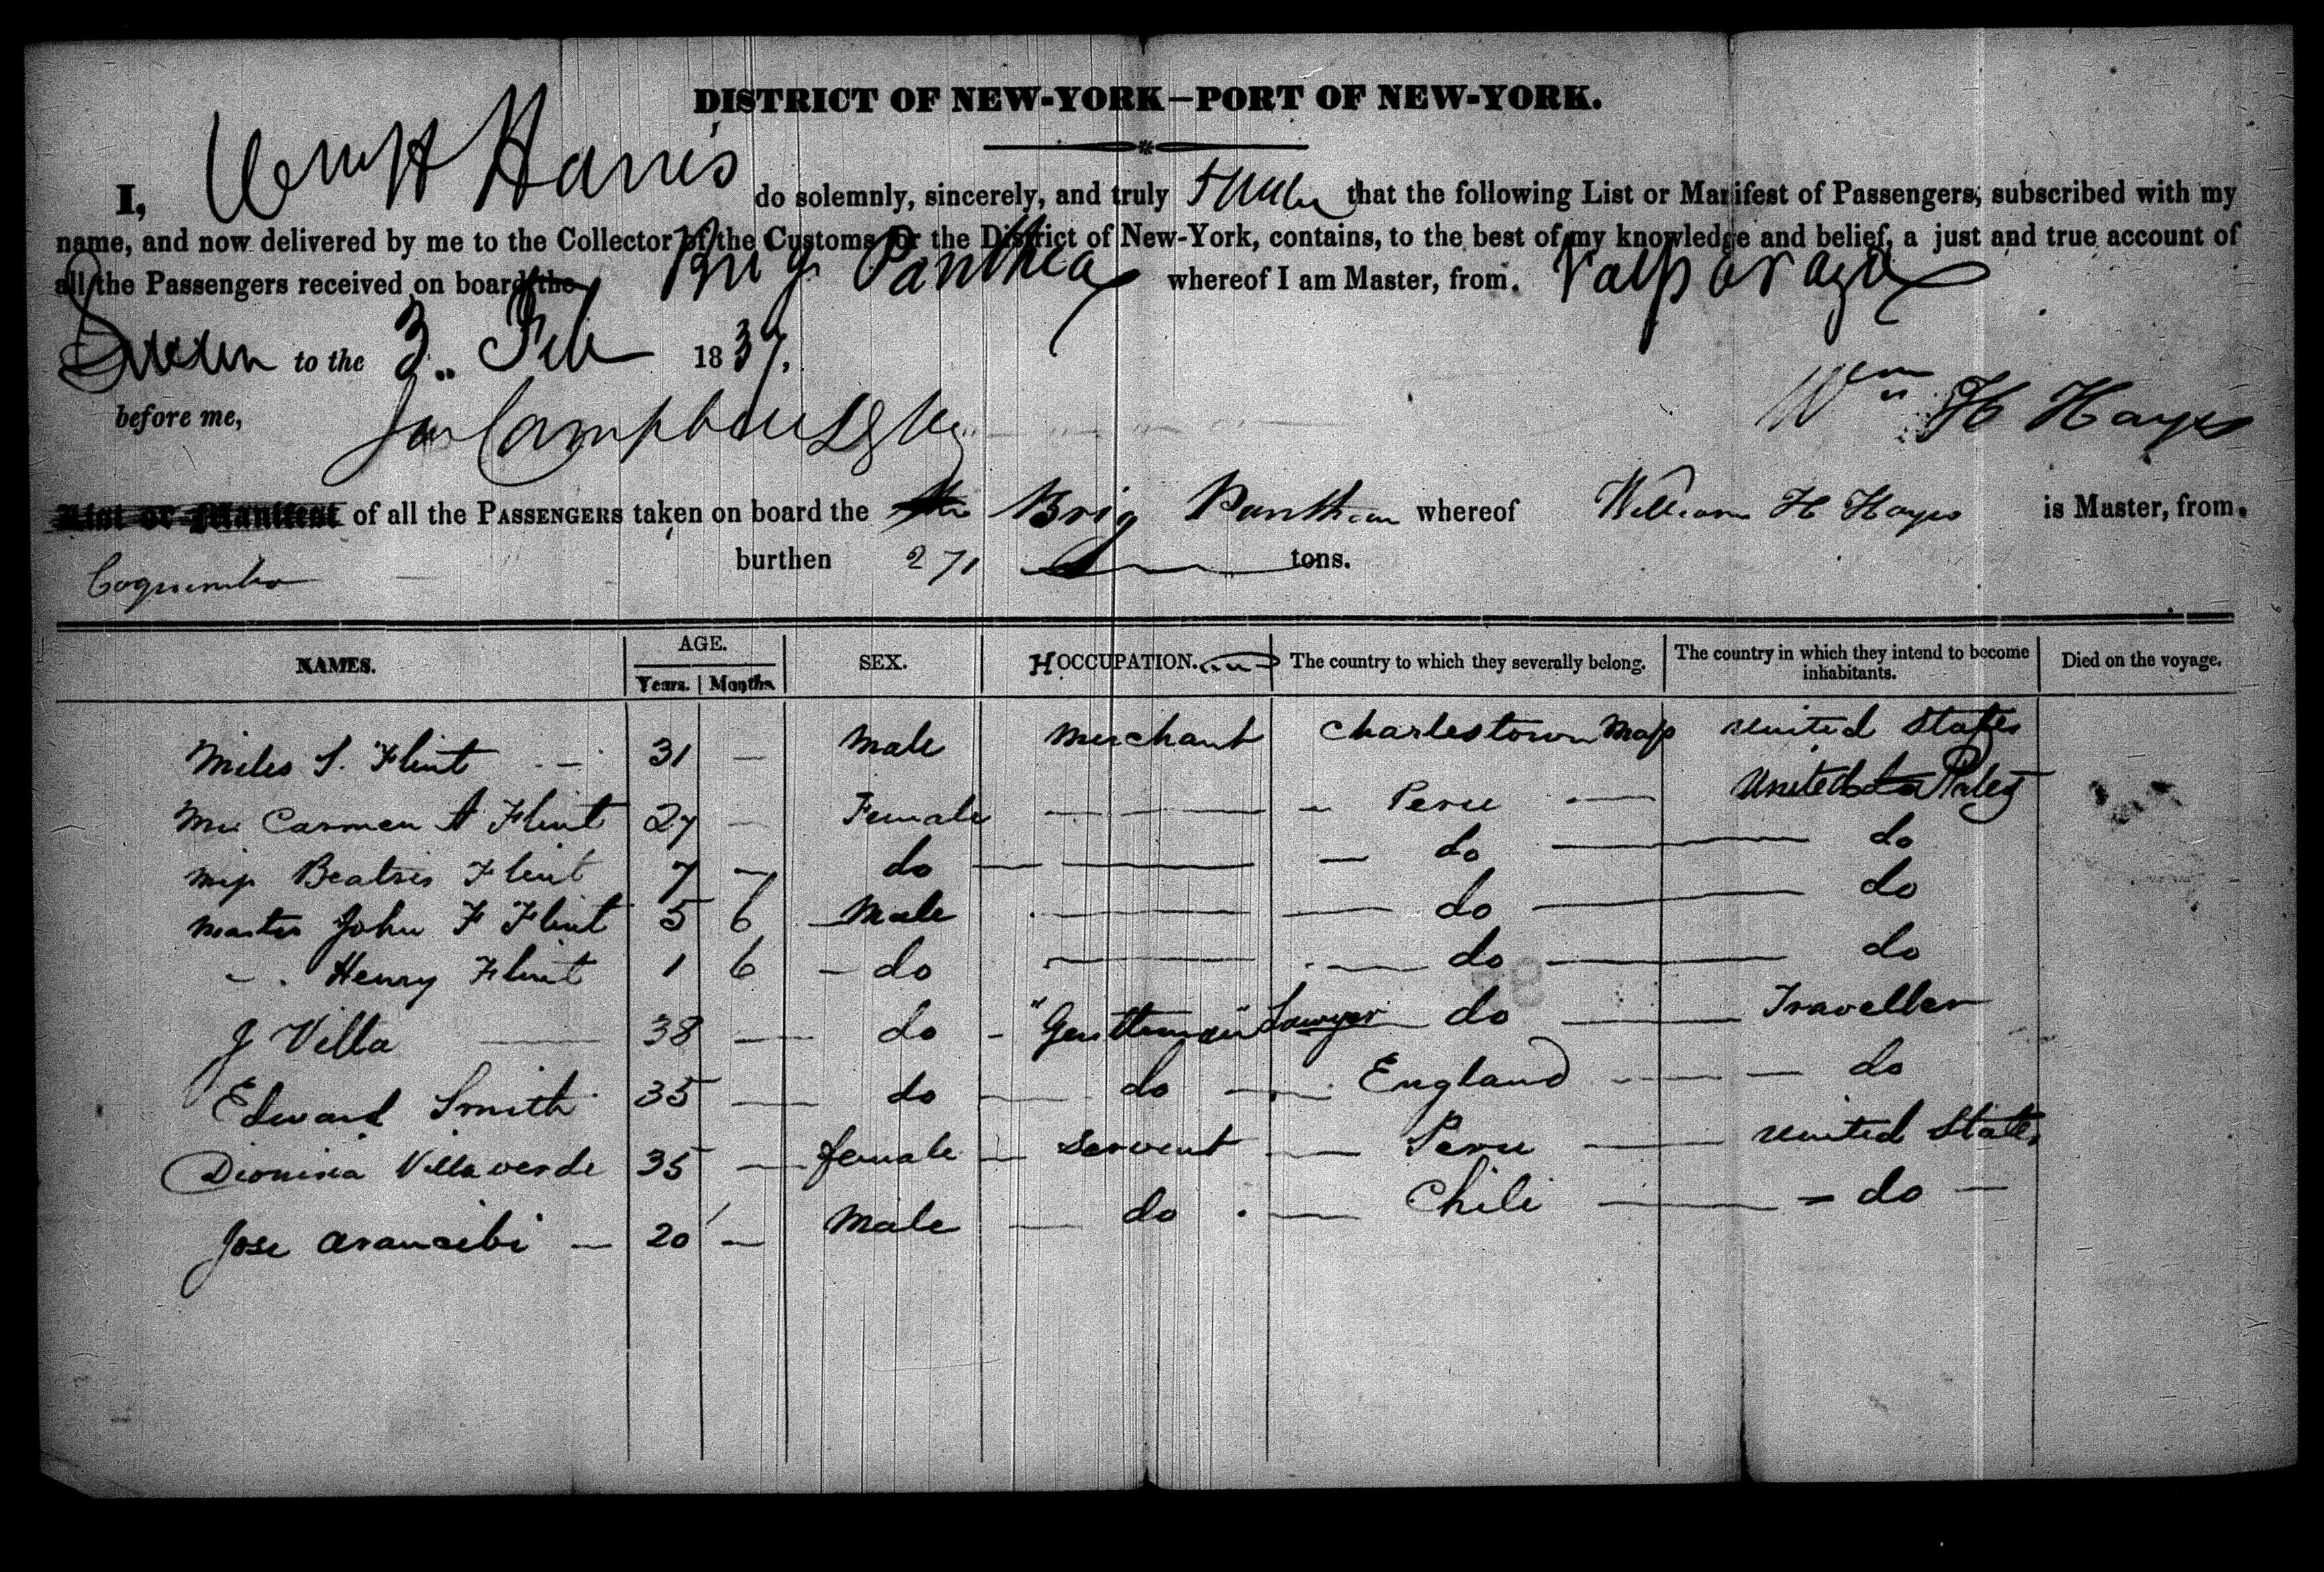 DISTRICT OF NEW-YORK—PORT OF NEW-YORK.
I, Wm H Harris do solemnly, sincerely, and truly swear that the following List or Manifest of Passengers, subscribed with my
name, and now delivered by me to the Collector of the Customs for the District of New-York, contains, to the best of my knowledge and belief, a just and true account of
all the Passengers received on board the Brig Panthea whereof I am Master, from Valparazo
Sworn to the 3.. Feb 1837.
before me, Campbell Wm H Hayes
List or Manifest of all the PASSENGERS taken on board the Brig Panthea whereof William H Hayes is Master, from
Coquimbo burthen 271 tons.
NAMES. AGE. Years. Months. SEX. OCCUPATION. The country to which they severally belong. The country in which they intend to become inhabitants. Died on the voyage.
Miles S. Flint — 31 — Male Merchant Charlestown Mass United States
Mrs Carmen A Flint 27 — Female — Peru — United States
Miss Beatris Flint 7 — do — do — do
Master John F Flint 5 6 Male — do — do
" Henry Flint 1 6 do — do — do
J Villa — 38 — do "Gentleman" Lawyer do — Traveller
Edward Smith 35 — do — do — England — do
Dionisia Villaverde 35 — female — Servent — Peru — United States
Jose Arancibi — 20 — Male — do — Chili — do —